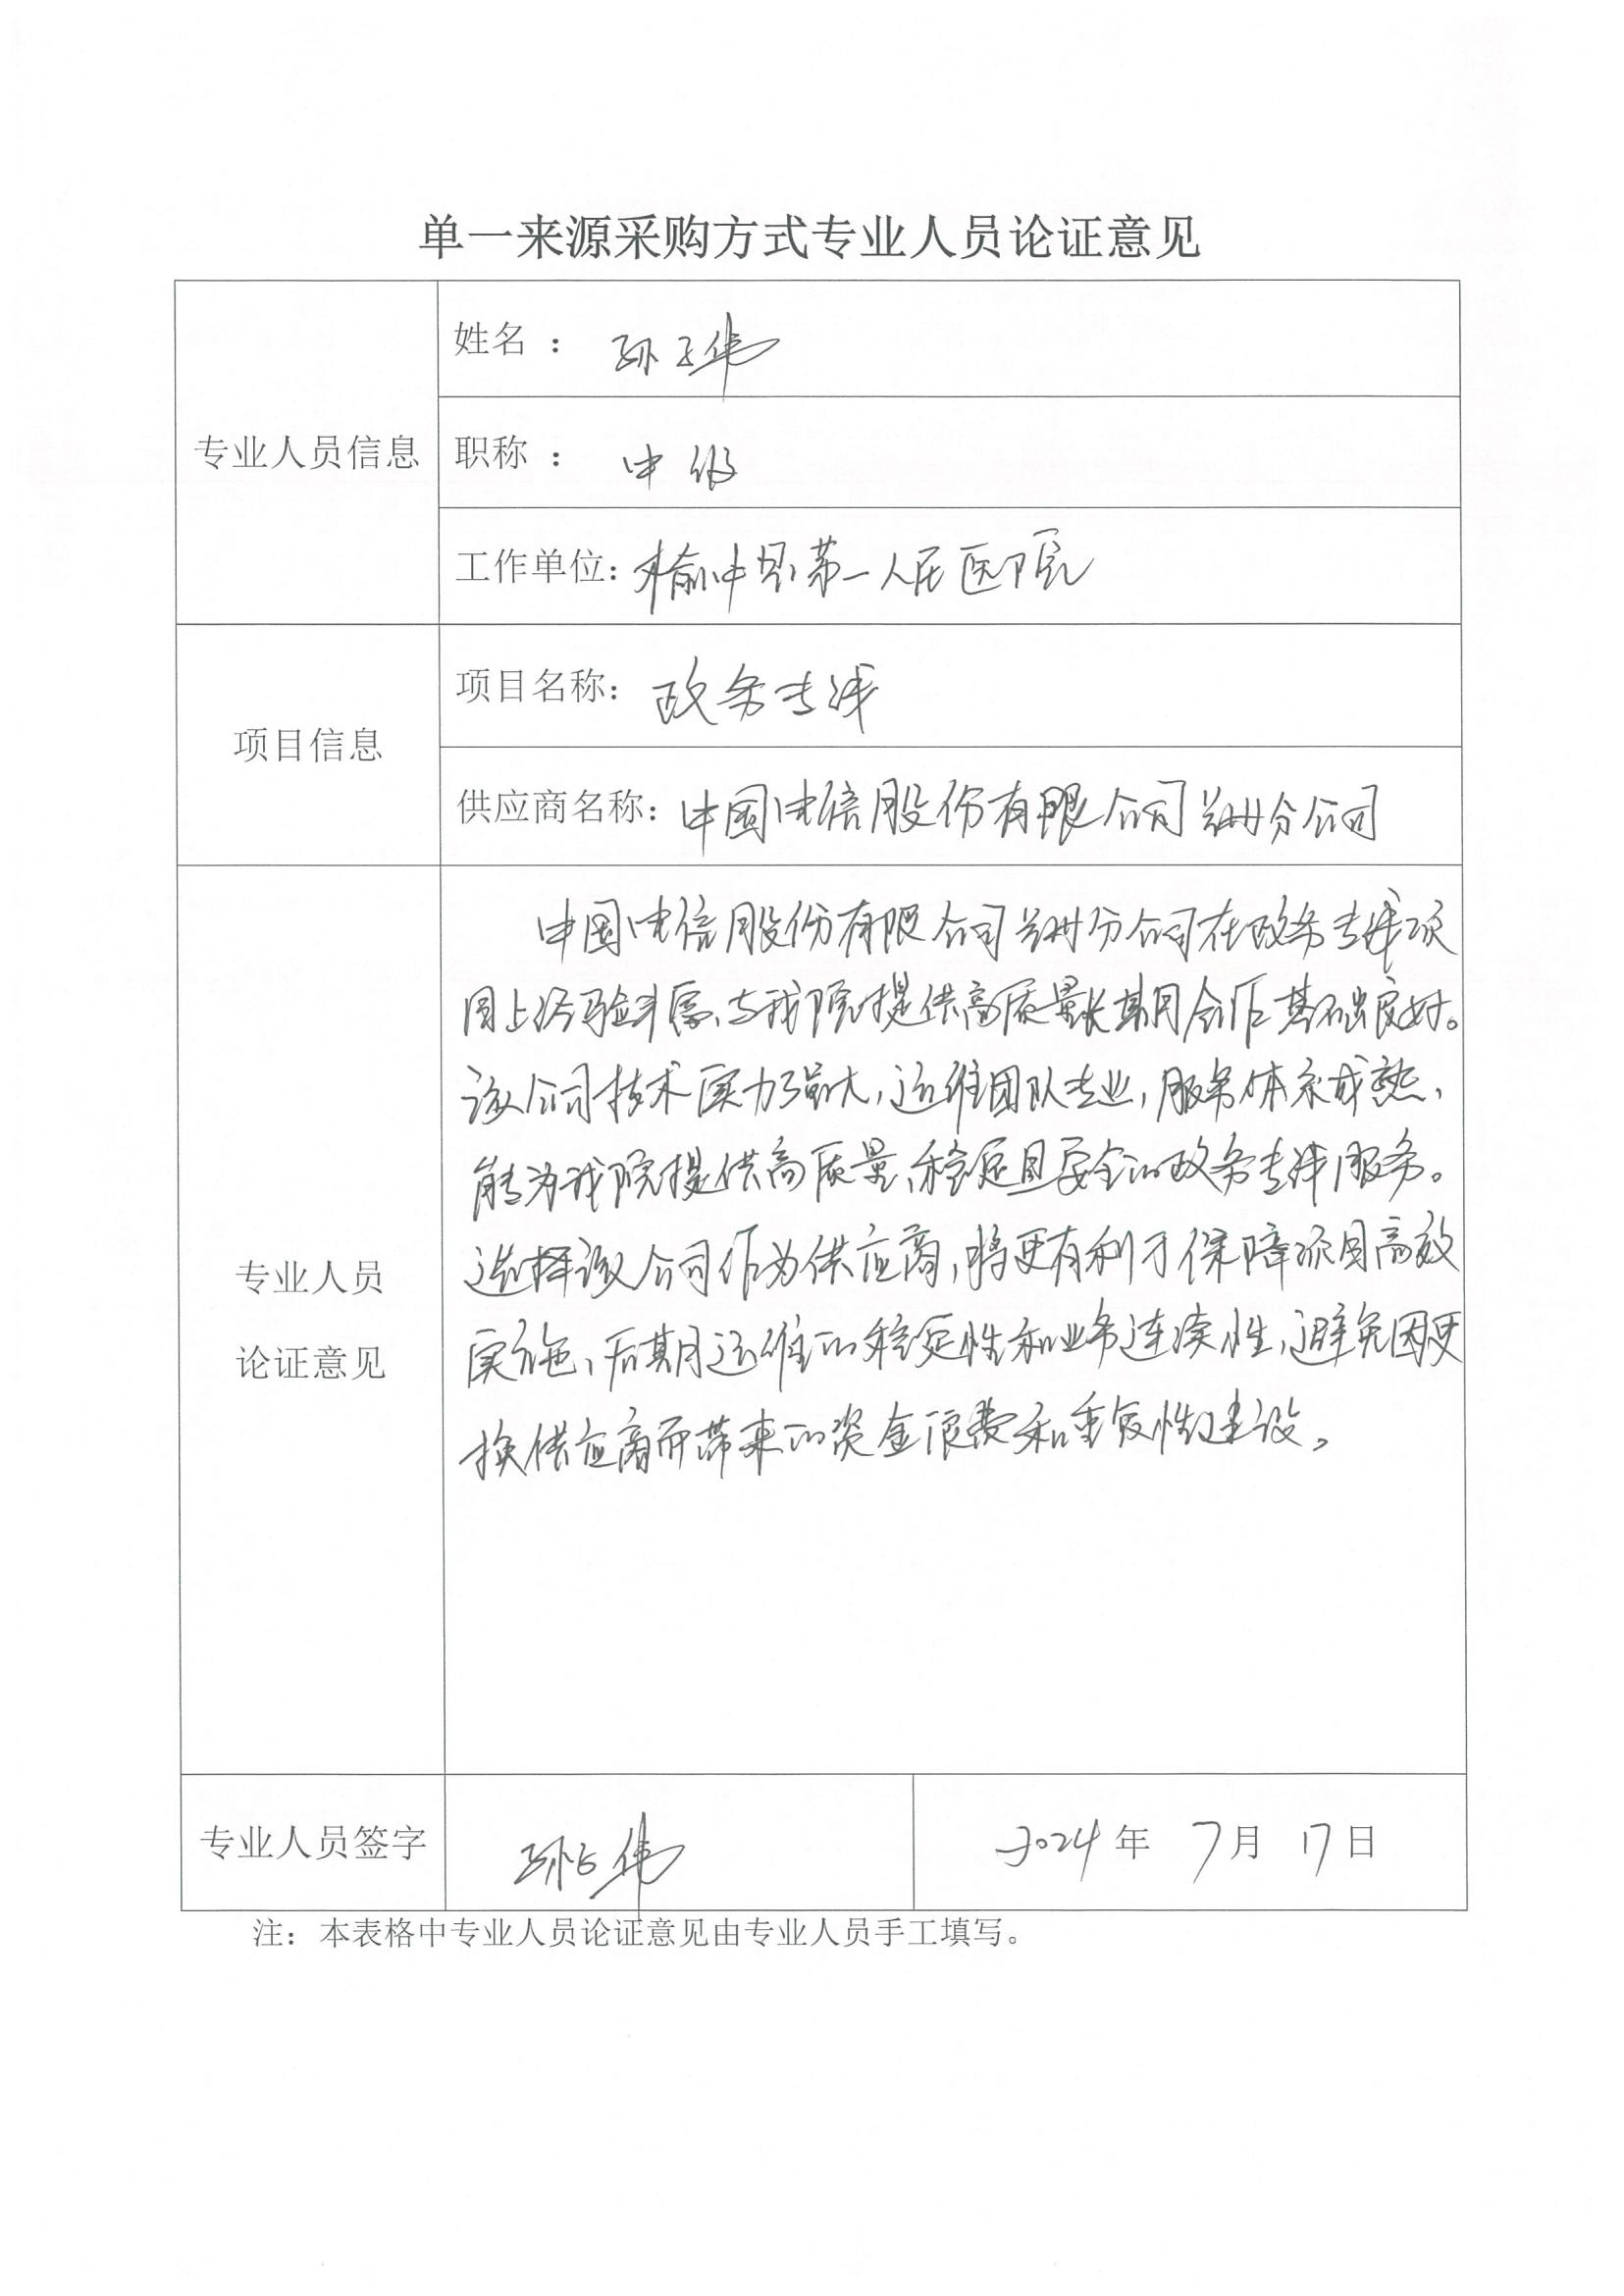 单一来源采购方式专业人员论证意见
专业人员信息
姓名 : 孙 伟
职称 : 中级
工作单位: 榆中县第一人民医院
项目信息
项目名称: 政务专线
供应商名称: 中国电信股份有限公司兰州分公司
专业人员
论证意见
中国电信股份有限公司兰州分公司在政务专线项
目上经验丰厚、与我院提供高质量长期合作基础良好。
该公司技术实力强大,运维团队专业,服务体系成熟、
能为我院提供高质量、稳定且安全的政务专线服务。
选择该公司作为供应商,将更有利于保障项目高效
实施、后期运维的稳定性和业务连续性,避免因更
换供应商而带来的资金浪费和重复性建设。
专业人员签字
孙 伟
2024年 7月 17日
注: 本表格中专业人员论证意见由专业人员手工填写。